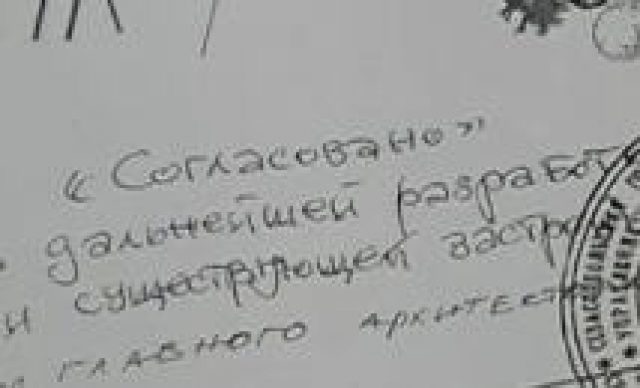 «Согласовано»
дальнейшей разработ
и существующей застро
главного архитект